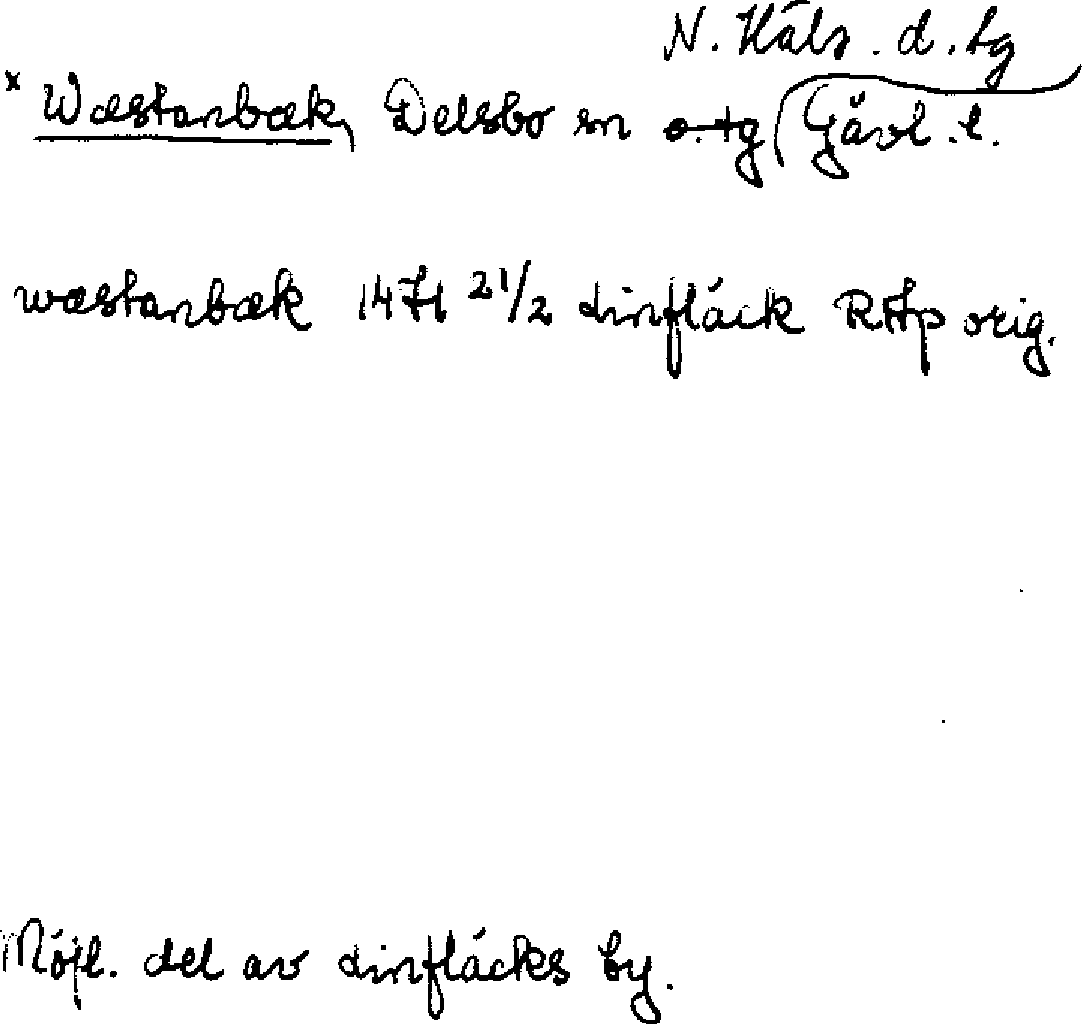 N. Häls. d. tg
x Wæstanbæk, Delsbo sn o. tg Gävl. l.
wæstanbæk 1471 21/2 Linfläck RAp orig.
Möjl. del av Linfläcks by.